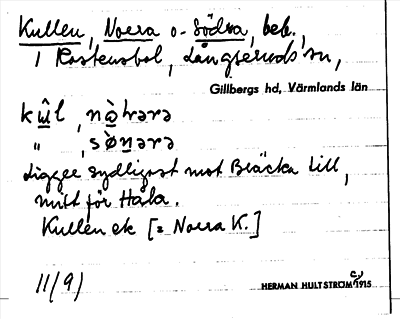 Kullen, Norra o. Södra, beb.,
i Rostensbol, Långseruds sn,
Gillbergs hd, Värmlands län
kûl, nòrərə
" , sønərə
Ligger sydligast mot Bräcka till,
mitt för Hala.
Kullen ek [= Norra K.]
11(9)
HERMAN HULTSTRÖM 1915